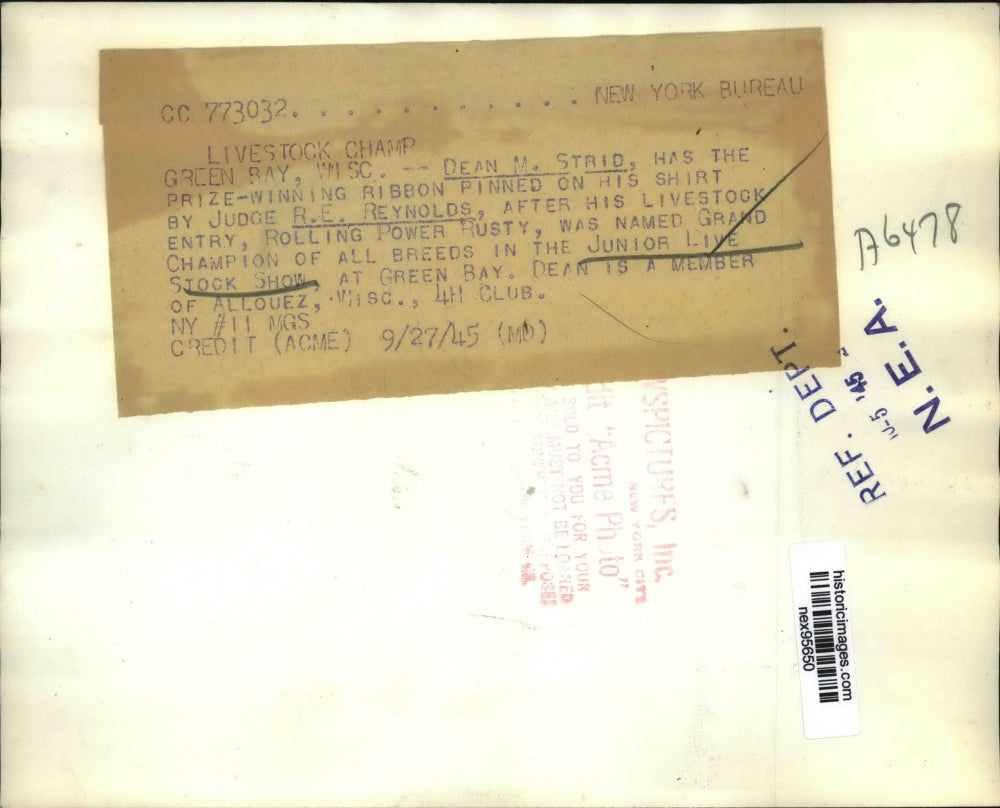 CC 773032. . . . . . . . . . . . . NEW YORK BUREAU
LIVESTOCK CHAMP
GREEN BAY, WISC. -- DEAN M. STRID, HAS THE
PRIZE-WINNING RIBBON PINNED ON HIS SHIRT
BY JUDGE R.E. REYNOLDS, AFTER HIS LIVESTOCK
ENTRY, ROLLING POWER RUSTY, WAS NAMED GRAND
CHAMPION OF ALL BREEDS IN THE JUNIOR LIVE
STOCK SHOW AT GREEN BAY. DEAN IS A MEMBER
OF ALLOUEZ, WISC., 4H CLUB.
NY #11 MGS
CREDIT (ACME) 9/27/45 (MD)
A6478
REF. DEPT.
10-5 '45
N.E.A.
WSPICTURES, Inc.
NEW YORK CITY
dit "Acme Ph to"
SOLD TO YOU FOR YOUR
AND MUST NOT BE LOANED
historicimages.com
nex95650